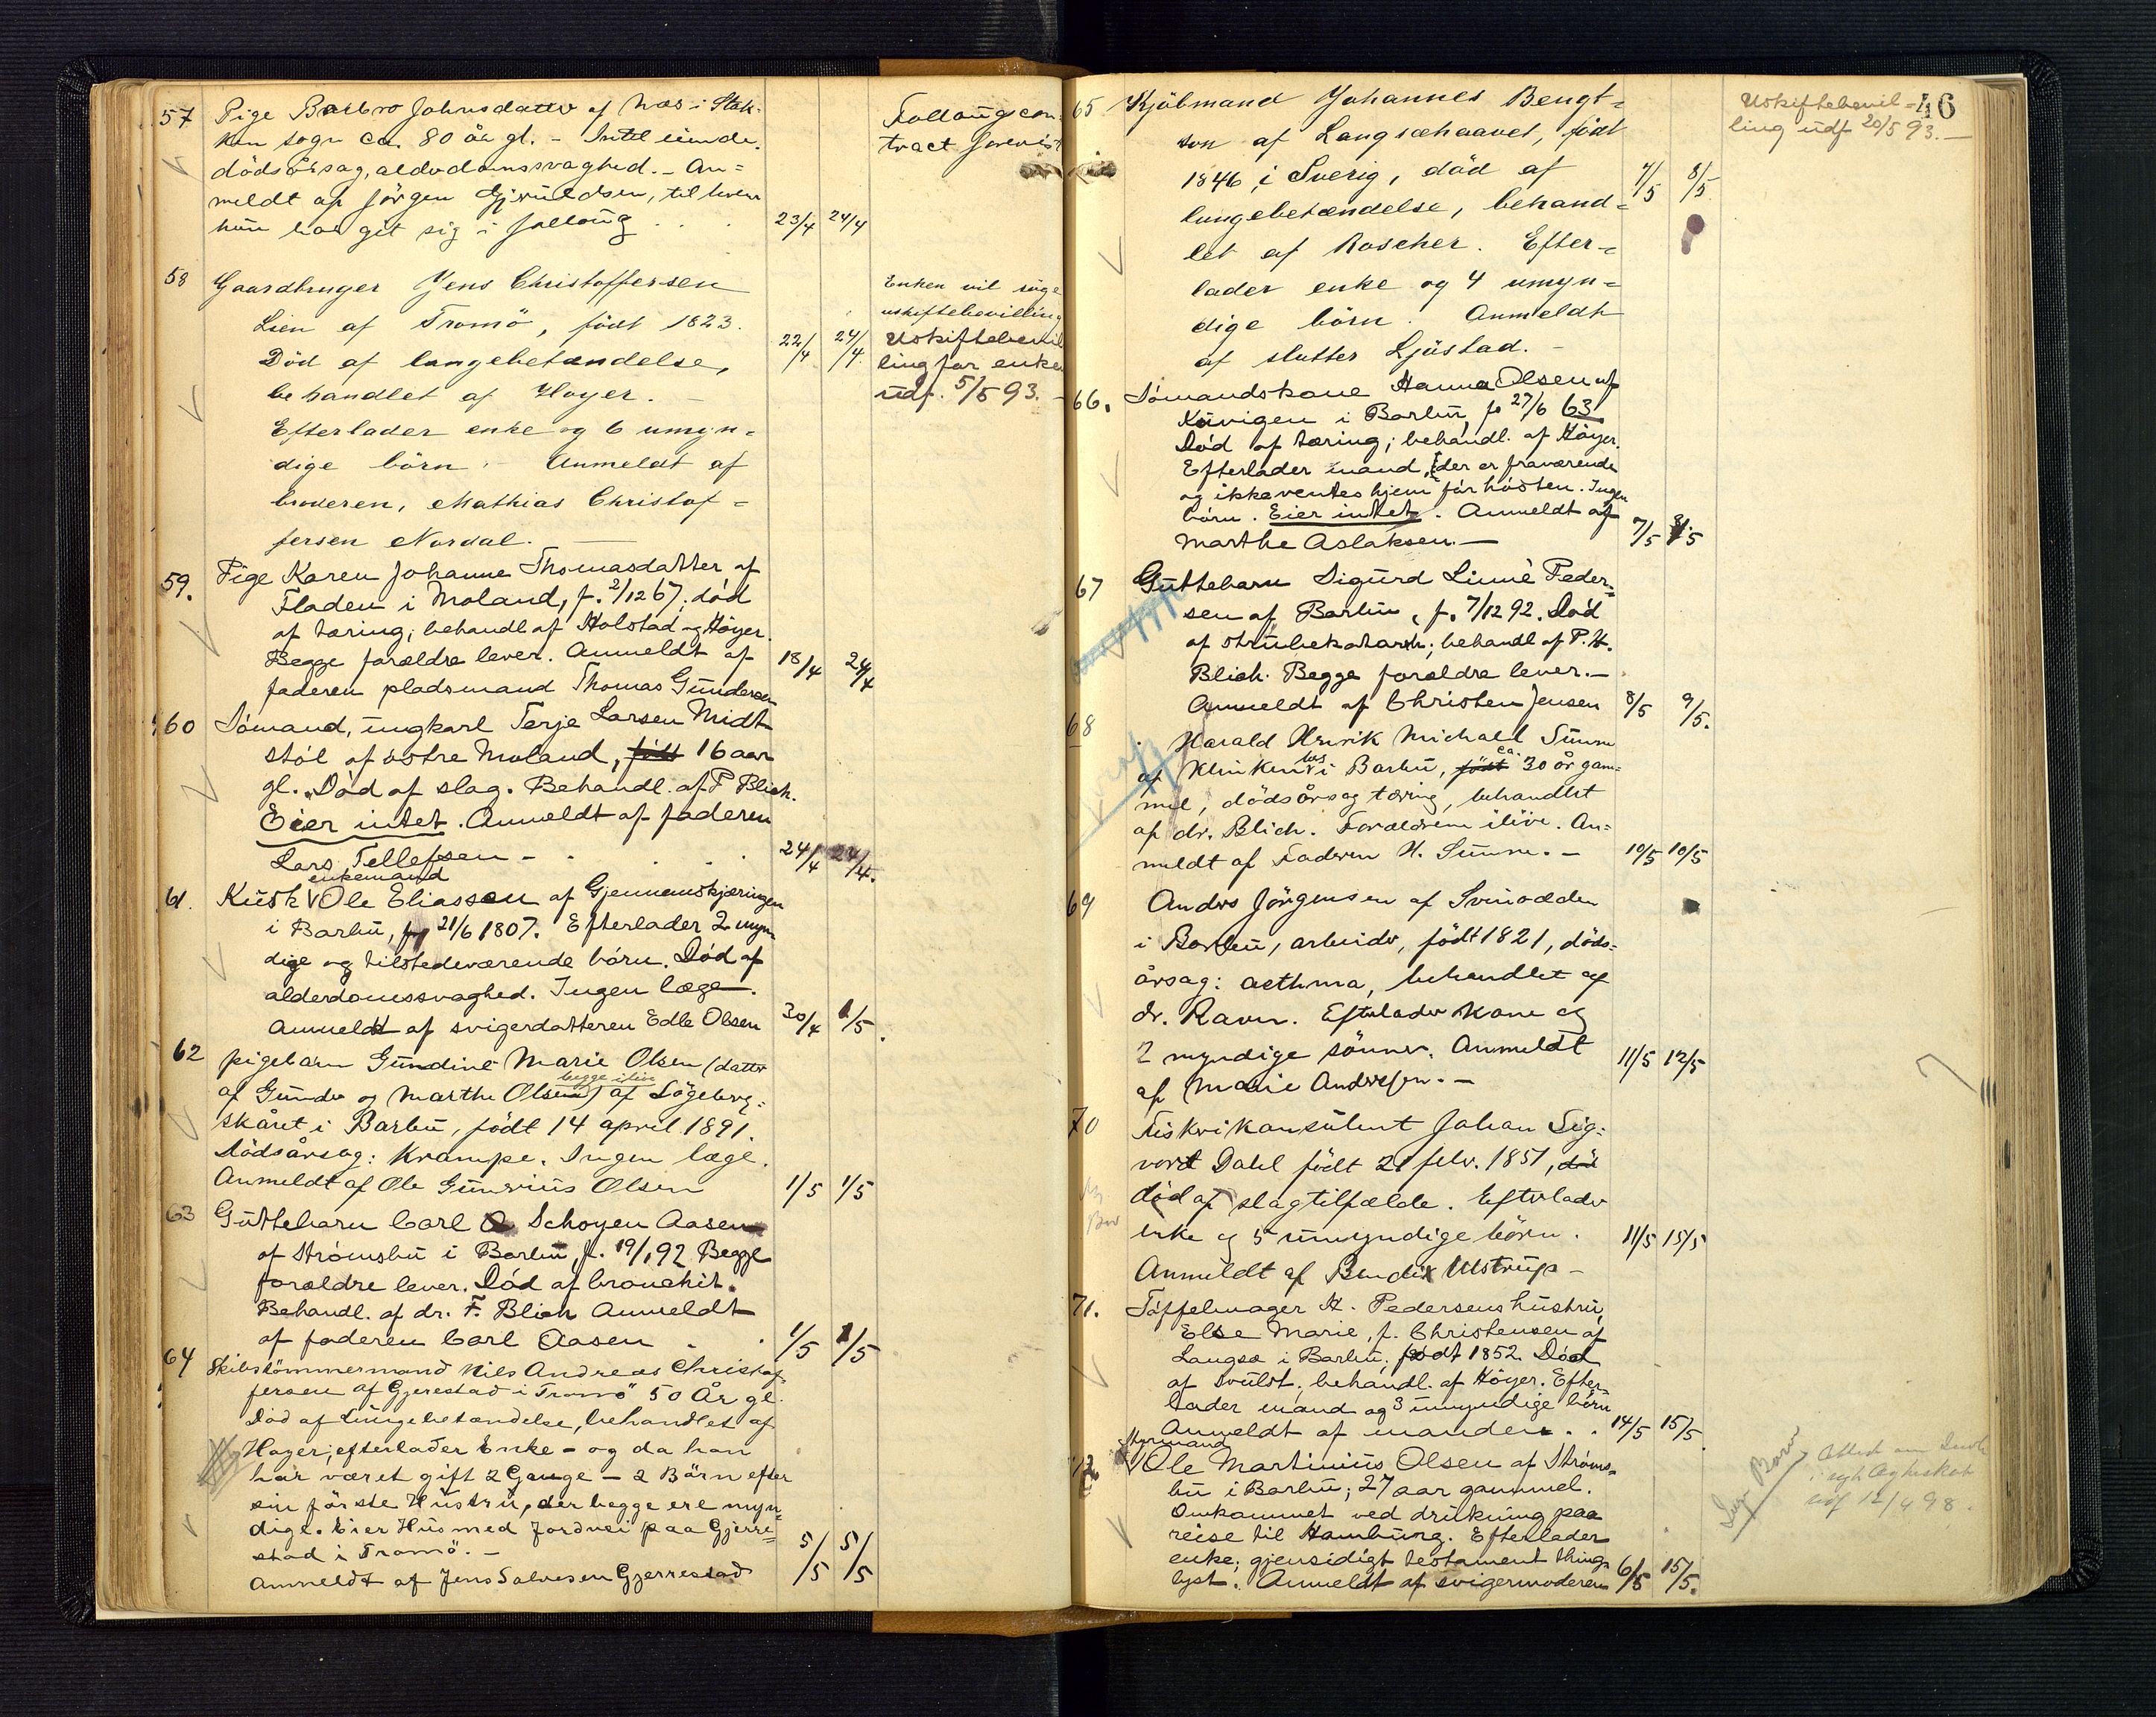 57 Pige Barbro Johnsdatter af Næs i Stok-
ken sogn ca. 80 år gl. - Intet eiende.
dödsårsag, alderdomssvaghed. - An=
meldt af Jörgen Gjeruldsen, til hvem
hun har git sig i follaug . . . 23/4 24/4
Follaugscon-
tract forevist
58 Gaardbruger Jens Christoffersen
Lien af Tromö, födt 1823.
Död af lungebetændelse, 22/4 24/4
behandlet af Høyer. -
Efterlader enke og 6 umyn=
dige börn. - Anmeldt af
broderen, Mathias Christof=
fersen Nordal.
Enken vil söge
uskiftebevilling
Uskiftebevil
ling for enken
udf. 5/5 93. -
59. Pige Karen Johanne Thomasdatter af
Fladen i Moland, f. 2/12 67; död
af tæring; behandl af Holstad og Höyer.
Begge forældre lever. Anmeldt af 18/4 24/4
faderen pladsmand Thomas Gundersen
60 Sömand, ungkarl Terje Larsen Midt
stöl af östre Moland, födt 16 aar
gl. Död af slag. Behandl. af P Blich.
Eier intet. Anmeldt af faderen
Lars Tellefsen - . . . . 24/4 24/4.
enkemand
61. Kusk Ole Eliassen af Gjennemskjæringen
i Barbu, f. 21/6 1807. Efterlader 2 myn
dige og tilstedeværende börn. Död af
alderdomssvaghed. Ingen læge.
Anmeldt af svigerdatteren Edle Olsen 30/4 1/5.
62 pigebarn Gundine Marie Olsen (datter
begge ilive
af Gunder og Marthe Olsen) af Lögeberg-
skåret i Barbu, födt 14 april 1891.
Dödsårsag: Krampe. Ingen læge.
Anmeldt af Ole Gunerius Olsen 1/5 1/5
63 Guttebarn Carl Schoyen Aasen
af Strömsbu i Barbu, f. 19/1 92 Begge
forældre lever. Död af bronchit.
Behandl. af dr. F. Blich Anmeldt
af faderen Carl Aasen . . 1/5 1/5
64 Skibstömmermand Nils Andreas Christof-
fersen af Gjerrestad i Tromö 50 År gl.
Död af Lungebetændelse, behandlet af
Høyer; efterlader Enke - og da han
har været gift 2 Gange - 2 Börn efter
sin förste Hustru, der begge ere myn-
dige. Eier Hus med Jordvei paa Gjerre-
stad i Tromö. -
Anmeldt af Jens Salvesen Gjerrestad 5/5 5/5
46
65 Kjöbmand Johannes Bengt=
son af Langsæhaavet, födt
1846 i Sverig, död af 7/5 8/5
lungebetændelse, behand=
let af Roscher. Efter=
lader enke og 4 umyn=
dige börn. Anmeldt
af slutter Ljöstad. -
Uskiftebevil=
ling udf 20/5 93. -
66. Sömandskone Hanna Olsen af
Kuvigen i Barbu, f. 27/6 63
Död af tæring; behandl. af Höyer.
Efterlader mand, der er fraværende
og ikke ventes hjem för hösten. Ingen
börn. Eier intet. Anmeldt af
Marthe Aslaksen. - 7/5 8/5
67 Guttebarn Sigurd Linnè Peder-
sen af Barbu, f. 7/12 92. Död
af strubekatarrh; behandl af P. H.
Blich. Begge forældre lever. -
Anmeldt af Christen Jensen 8/5 9/5.
68 Harald Henrik Michael Sunne
af Klinken i Barbu, födt ca. 30 år gam=
mel, dödsårsag tæring, behandlet
af dr. Blich. Forældrene ilive. An=
meldt af Faderen H. Sunne. - 10/5 10/5
69 Anders Jörgensen af Svinodden
i Barbu, arbeider, födt 1821, döds-
årsag: asthma, behandlet af
dr. Ravn. Efterlader Kone og
2 myndige sönner. Anmeldt 11/5 12/5
af Marie Andersen. -
70 Fiskerikonsulent Johan Sig-
vart Dahl födt 21 febr. 1851, död
död af slagtilfælde. Efterlader
enke og 5 umyndige börn. 11/5 15/5
Anmeldt af Bendix Ulstrup -
71. Töffelmager H. Pedersens hustru,
Else Marie, f. Christensen af
Langsæ i Barbu, födt 1852. Död
af svulst, behandl. af Höyer. Efter-
lader mand og 3 umyndige börn
Anmeldt af manden. . 14/5 15/5.
Styrmand
72 Ole Martinius Olsen af Ströms-
bu i Barbu; 27 aar gammel.
Omkommet ved drukning paa
reise til Hamburg. Efterlader
enke; gjensidigt testament thing-
lyst. Anmeldt af svigermoderen 6/5 15/5.
Attest om
udf 12/4 98.